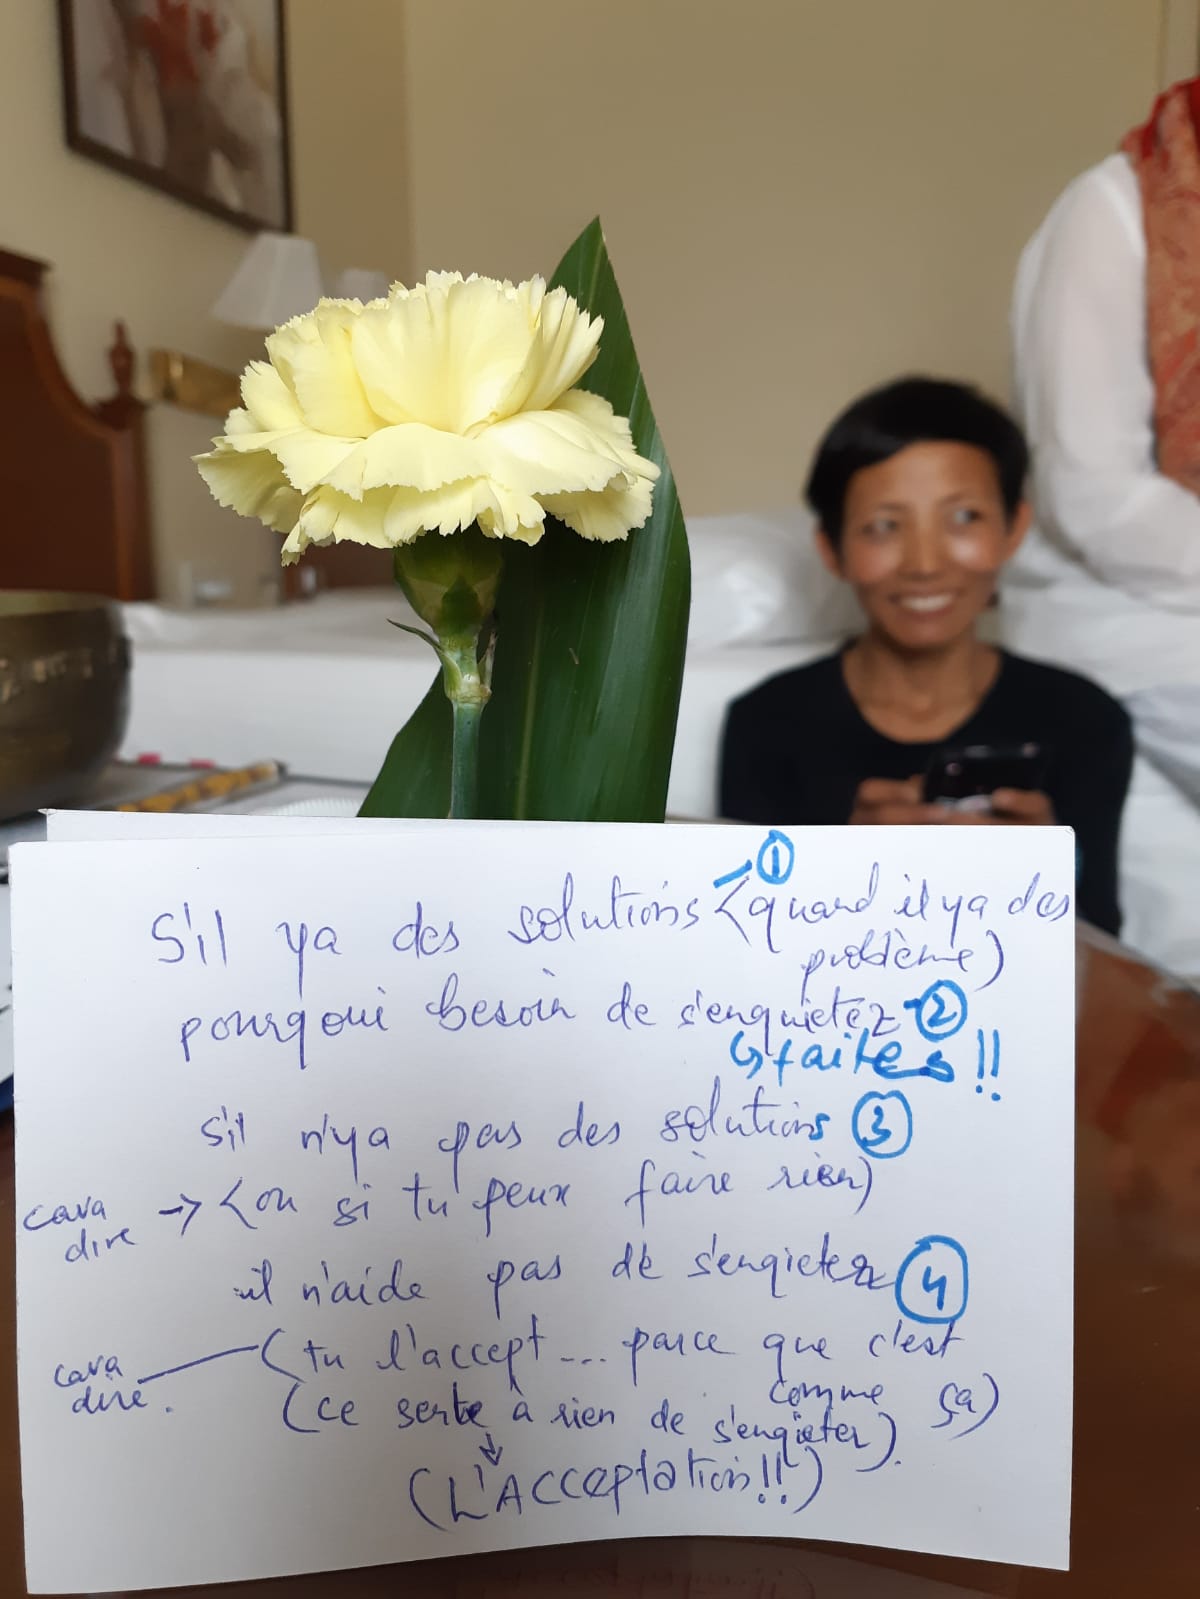 ①
S'il ya des solutions <quand il ya des
problème)
pourqoui besoin de s'enquietez - ②
↳ faites !!
S'il n'ya pas des solutions ③
cava dire → <ou si tu peux faire rien)
il n'aide pas de s'enqieter ④
cava dire. (tu l'accept... parce que c'est
comme ça)
(ce serte à rien de s'enqieter).
↓
(L'ACCeptation!!)